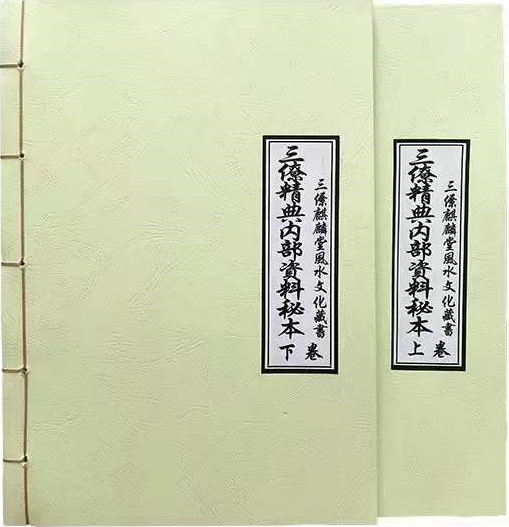 三僚麒麟堂風水文化藏書 卷
三僚精典内部資料秘本 上
三僚麒麟堂風水文化藏書 卷
三僚精典内部資料秘本 下